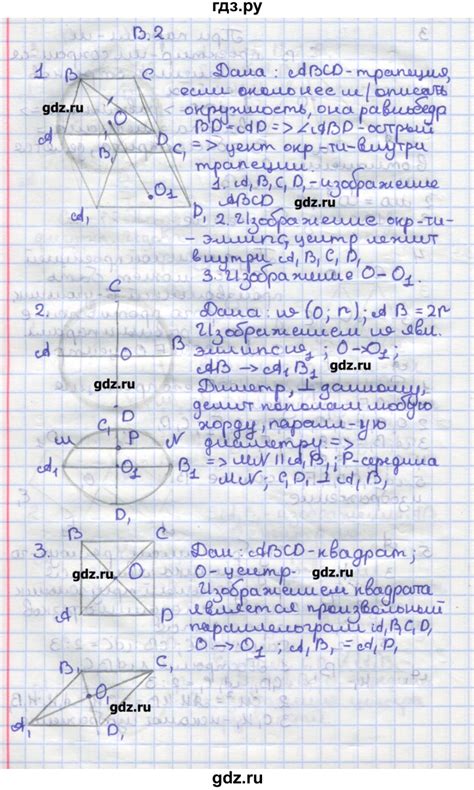 гдз.ру
В.2
1. B C Дана: ABCD - трапеция,
если около нее м/описать
окружность, она равнобедр
O BD = AD => ∠ABD - острый
A B₁ D C₁ => цент окр-ти - внутри
трапеции.
O₁ 1. A₁B₁C₁D₁ - изображение
A₁ D₁ ABCD
2. Изображение окр-ти -
- эллипс, центр лежит
внутри A₁B₁C₁D₁
3. Изображение O - O₁.
C
2. Дана: w (O; r); AB = 2r
A O B Изображением w явл.
эллипс w₁; O → O₁;
AB → A₁B₁
D Диаметр, ⊥ данному,
C₁ P делит пополам любую
M N хорду, паралл-ую
диаметру =>
A₁ O₁ B₁ => MN || A₁B₁; P - середина
MN; C₁D₁ ⊥ A₁B₁
D₁
3. B C Дан: ABCD - квадрат;
O O - центр.
A D Изображением квадрата
является произвольный
параллелограмм A₁B₁C₁D₁
B₁ C₁ O → O₁; A₁B₁ = A₁D₁
O₁
A₁ D₁
gdz.ru
gdz.ru
gdz.ru
gdz.ru
gdz.ru
gdz.ru
gdz.ru
gdz.ru
gdz.ru
gdz.ru
gdz.ru